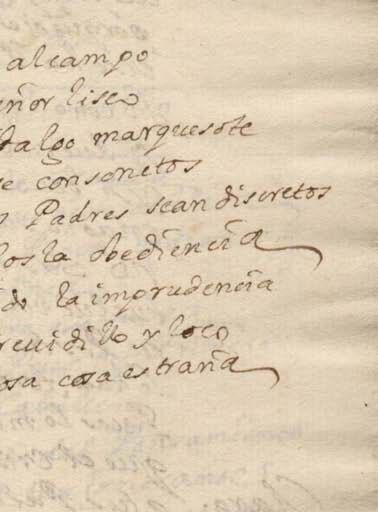 al campo
eñor liseo
dalgo marquesote
e con sonetos
s Padres sean discretos
los la obediencia
ido la imprudencia
revidillo y loco
osa cosa estraña